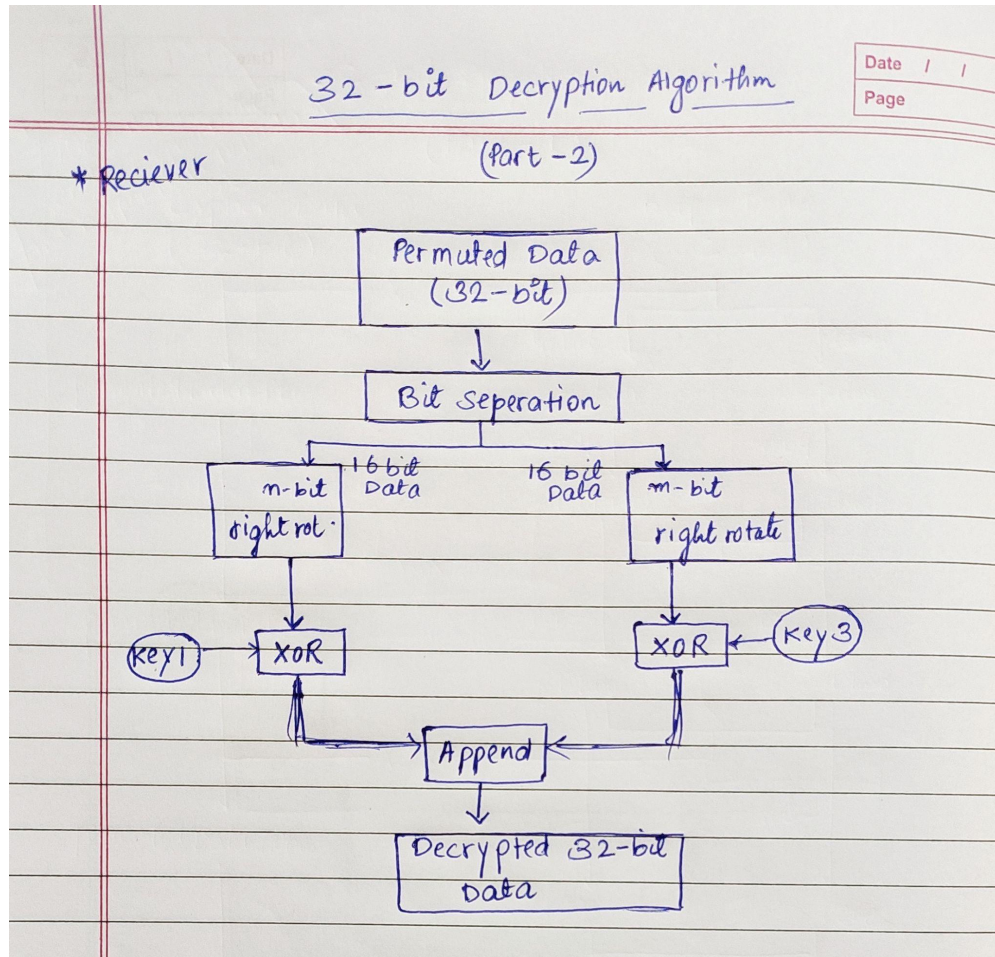 32-bit Decryption Algorithm
Date / /
Page
(Part-2)
* Reciever
Permuted Data
(32-bit)
Bit Seperation
16 bit
Data
16 bit
Data
n-bit
right rot.
m-bit
right rotate
Key1
XOR
XOR
Key3
Append
Decrypted 32-bit
Data